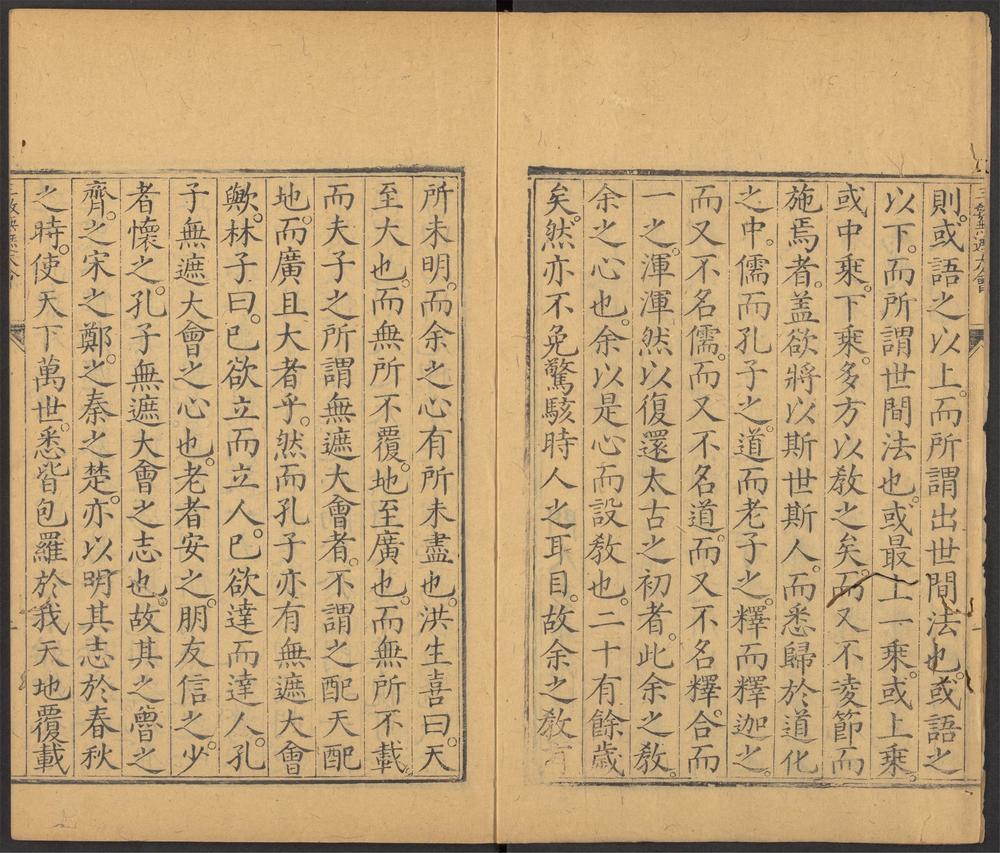 則。或語之以上。而所謂出世間法也。或語之
以下。而所謂世間法也。或最上一乘。或上乘。
或中乘。下乘。多方以敎之矣。而又不凌節而
施焉者。蓋欲將以斯世斯人。而悉歸於道化
之中。儒而孔子之。道而老子之。釋而釋迦之。
而又不名儒。而又不名道。而又不名釋。合而
一之。渾渾然以復還太古之初者。此余之敎。
余之心也。余以是心而設敎也。二十有餘歲
矣。然亦不免驚駭時人之耳目。故余之敎有
所未明。而余之心有所未盡也。洪生喜曰。天
至大也。而無所不覆。地至廣也。而無所不載。
而夫子之所謂無遮大會者。不謂之配天配
地。而廣且大者乎。然而孔子亦有無遮大會
歟。林子曰。己欲立而立人。己欲達而達人。孔
子無遮大會之心也。老者安之。朋友信之。少
者懷之。孔子無遮大會之志也。故其之魯之
齊。之宋之鄭。之秦之楚。亦以明其志於春秋
之時。使天下萬世。悉皆包羅於我天地覆載